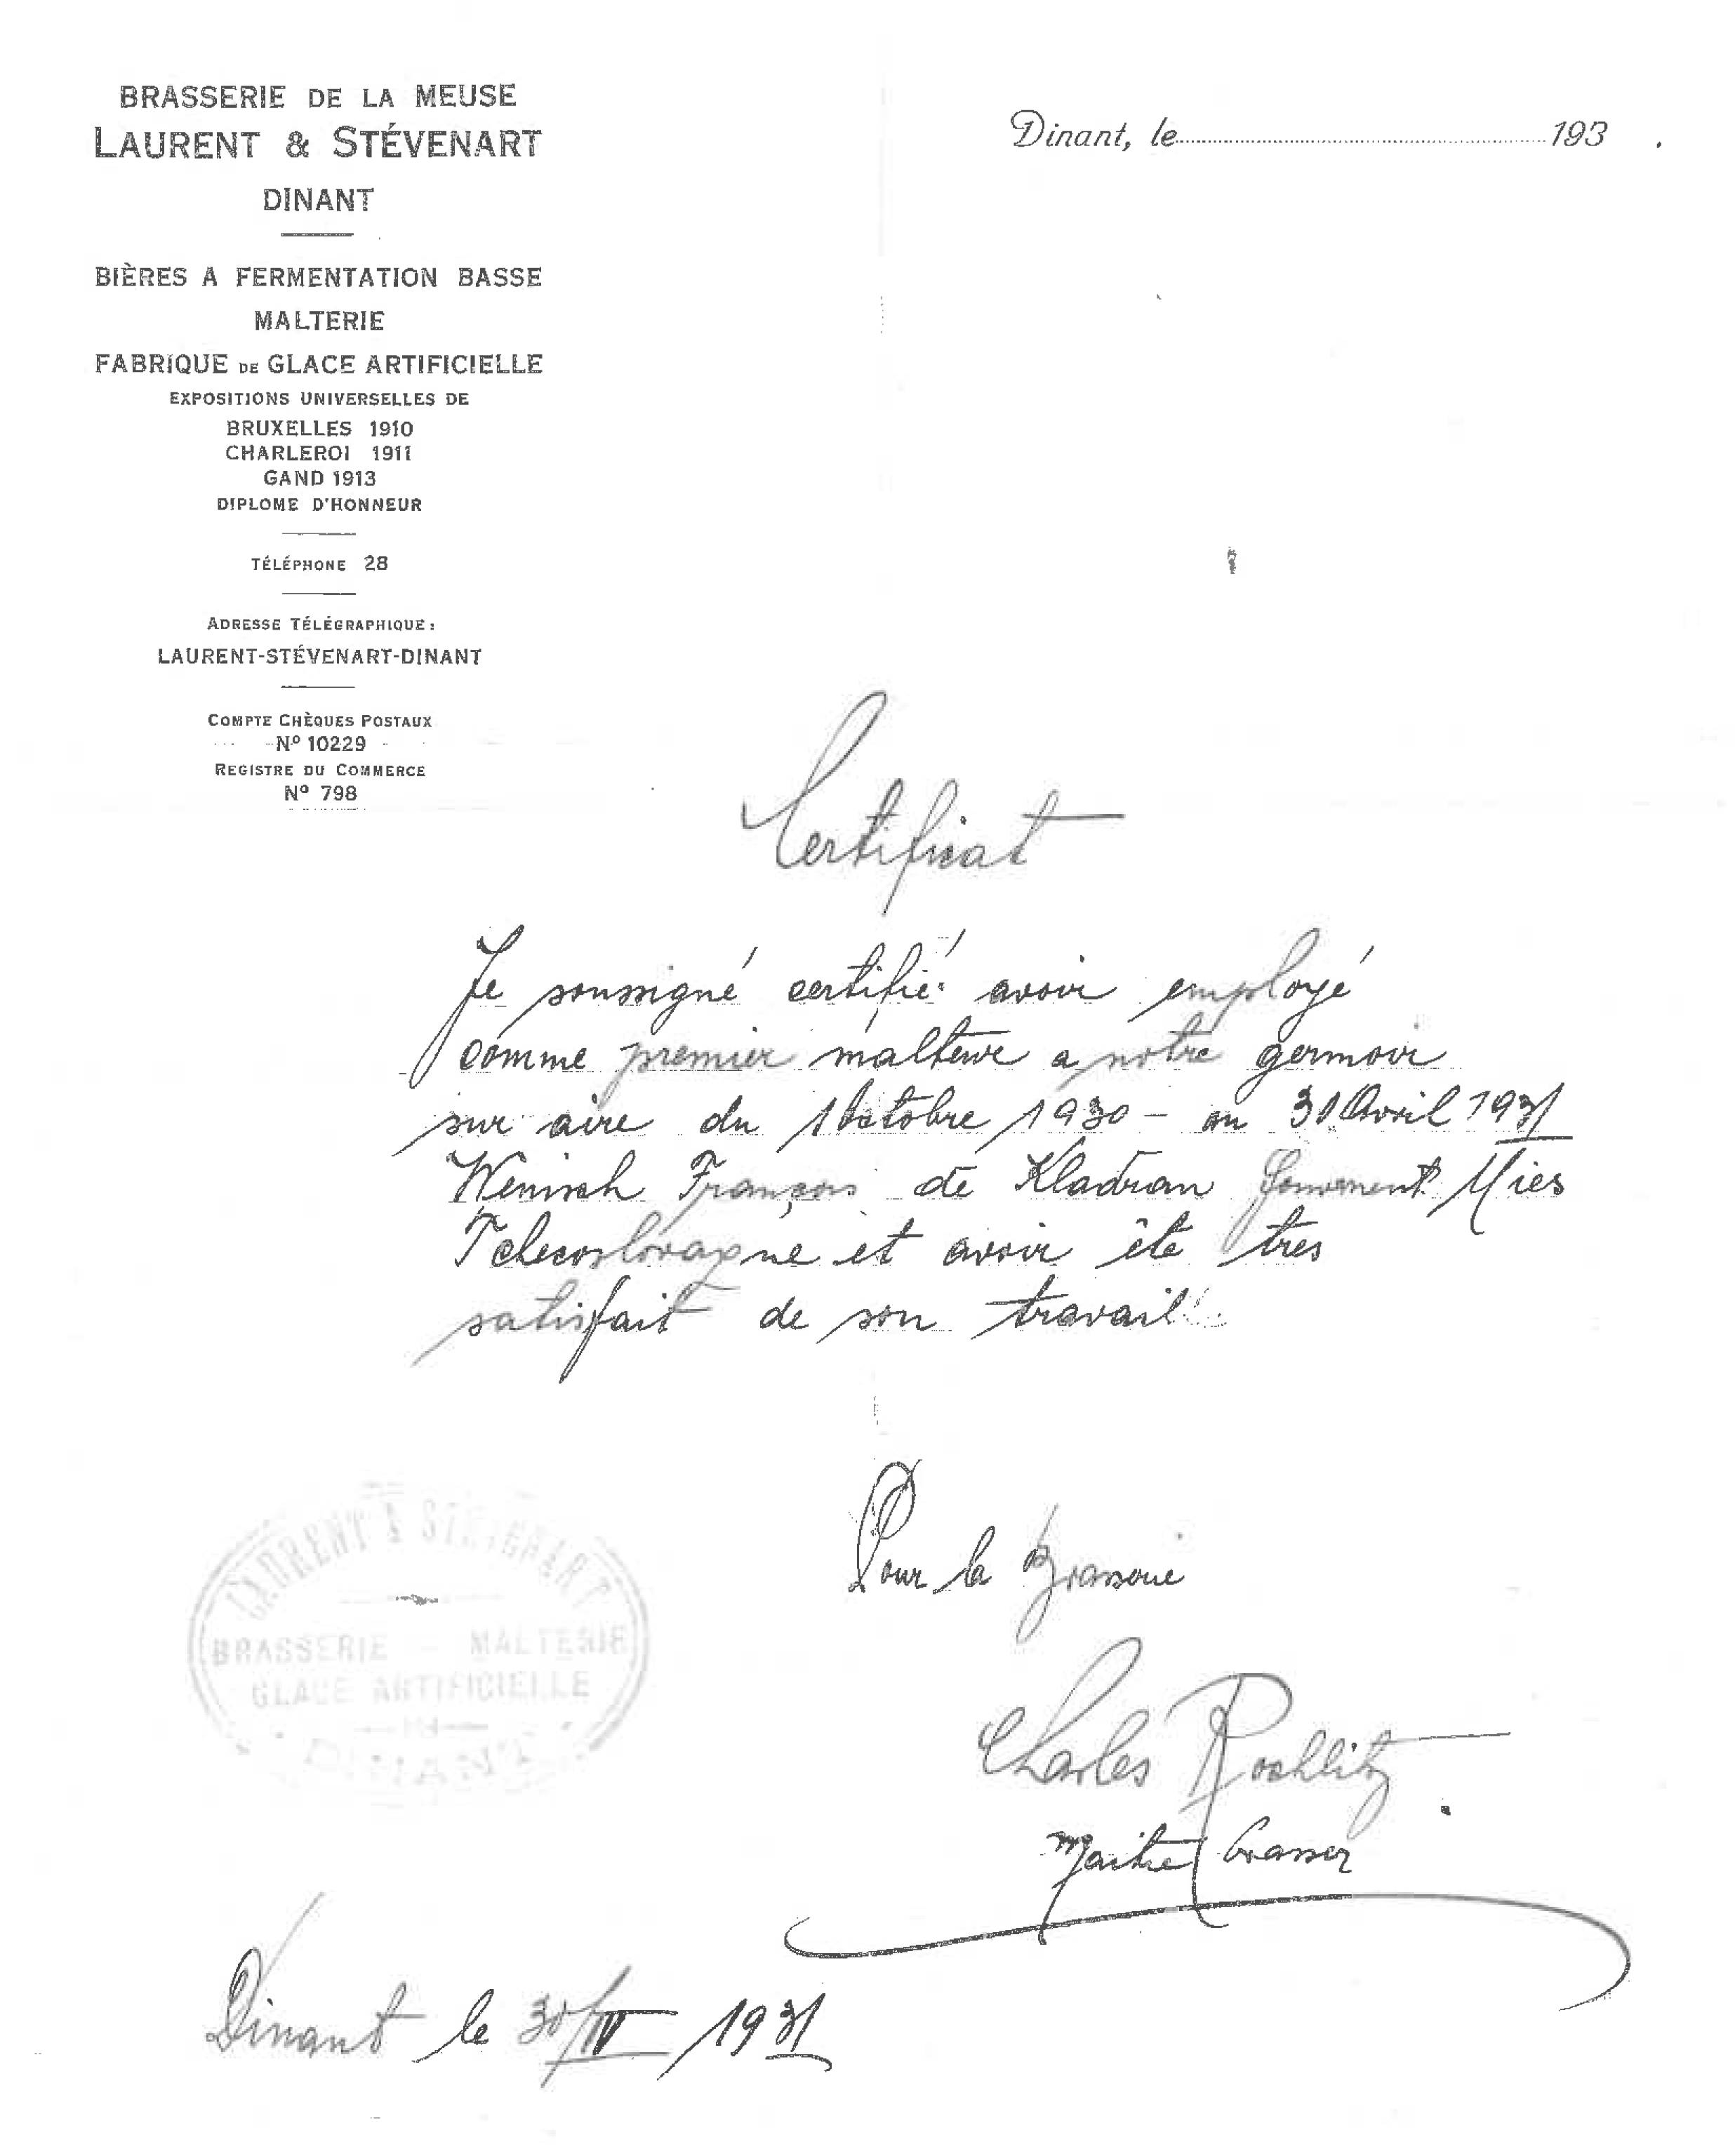 BRASSERIE DE LA MEUSE
LAURENT & STÉVENART
DINANT
BIÈRES A FERMENTATION BASSE
MALTERIE
FABRIQUE DE GLACE ARTIFICIELLE
EXPOSITIONS UNIVERSELLES DE
BRUXELLES 1910
CHARLEROI 1911
GAND 1913
DIPLOME D'HONNEUR
TÉLÉPHONE 28
ADRESSE TÉLÉGRAPHIQUE:
LAURENT-STÉVENART-DINANT
COMPTE CHÈQUES POSTAUX
Nº 10229
REGISTRE DU COMMERCE
Nº 798
Dinant, le 193 .
Certificat
Je soussigné certifié avoir employé
comme premier malteur a notre germoir
sur aire du 1 Octobre 1930 - au 30 Avril 1931
Wenisch François de Kladrau Mies
et avoir été tres
satisfait de son travail.
Pour la Brasserie
Charles Rochlitz
Maitre brasser
LAURENT & STÉVENART
BRASSERIE - MALTERIE
GLACE ARTIFICIELLE
DINANT
Dinant le 30/IV 1931